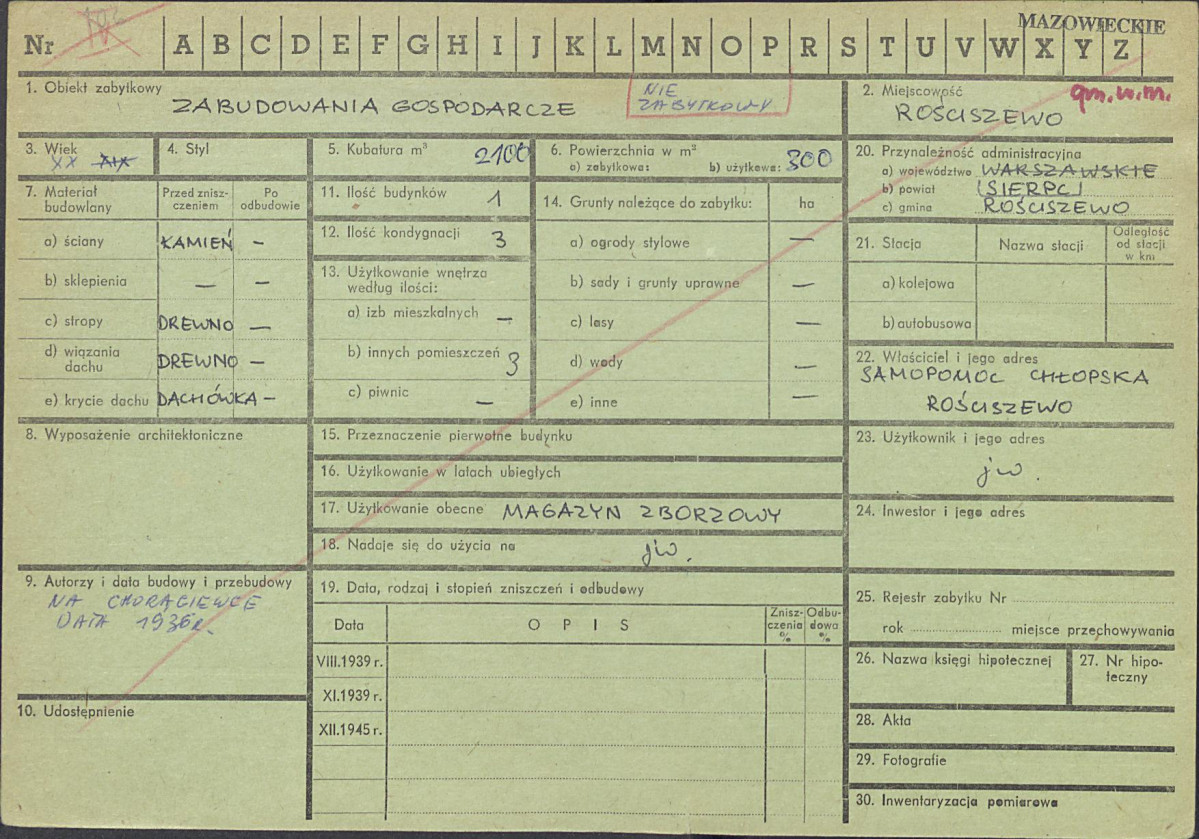 MAZOWIECKIE
Nr IV A B C D E F G H I J K L M N O P R S T U V W X Y Z
1. Obiekt zabytkowy
ZABUDOWANIA GOSPODARCZE
NIE
ZABYTKOWY
2. Miejscowość
gm. w.m.
ROŚCISZEWO
3. Wiek
XX XIX
4. Styl
5. Kubatura m³ 2100
6. Powierzchnia w m²
a) zabytkowa: b) użytkowa: 300
20. Przynależność administracyjna
a) województwo WARSZAWSKIE
b) powiat (SIERPC)
c) gmina ROŚCISZEWO
7. Materiał
budowlany
Przed znisz-
czeniem
Po
odbudowie
a) ściany KAMIEŃ —
b) sklepienia — —
c) stropy DREWNO —
d) wiązania
dachu DREWNO —
e) krycie dachu DACHÓWKA —
11. Ilość budynków 1
12. Ilość kondygnacji 3
13. Użytkowanie wnętrza
według ilości:
a) izb mieszkalnych —
b) innych pomieszczeń 3
c) piwnic —
14. Grunty należące do zabytku: ha
a) ogrody stylowe —
b) sady i grunty uprawne —
c) lasy —
d) wody —
e) inne —
21. Stacja
Nazwa stacji
Odległość
od stacji
w km
a) kolejowa
b) autobusowa
22. Właściciel i jego adres
SAMOPOMOC CHŁOPSKA
ROŚCISZEWO
8. Wyposażenie architektoniczne
15. Przeznaczenie pierwotne budynku
16. Użytkowanie w latach ubiegłych
17. Użytkowanie obecne MAGAZYN ZBORZOWY
18. Nadaje się do użycia na jw.
23. Użytkownik i jego adres
jw.
24. Inwestor i jego adres
9. Autorzy i data budowy i przebudowy
NA CHORĄGIEWCE
DATA 1936r.
19. Data, rodzaj i stopień zniszczeń i odbudowy
Data
OPIS
Znisz-
czenia
%
Odbu-
dowa
%
VIII.1939 r.
XI.1939 r.
XII.1945 r.
25. Rejestr zabytku Nr
rok miejsce przechowywania
26. Nazwa księgi hipotecznej
27. Nr hipo-
teczny
10. Udostępnienie
28. Akta
29. Fotografie
30. Inwentaryzacja pomiarowa